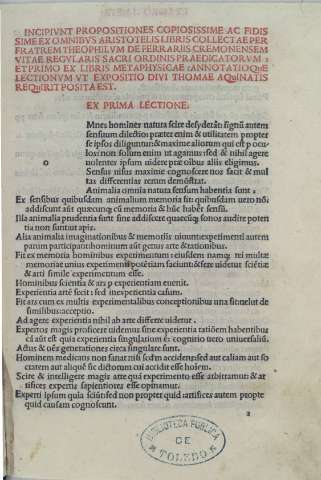 INCIPIVNT PROPOSITIONES COPIOSISSIME AC FIDIS
SIME EX OMNIBVS ARISTOTELIS LIBRIS COLLECTAE PER
FRATREM THEOPHILVM DE FERRARIIS CREMONENSEM
VITAE REGVLARIS SACRI ORDINIS PRAEDICATORVM:
ET PRIMO EX LIBRIS METAPHYSICAE: ANNOTATIONE
LECTIONVM VT EXPOSITIO DIVI THOMAE AQVINATIS
REQVIRIT POSITA EST.
EX PRIMA LECTIONE:
Mnes homines natura scire desyderāt: signū autem
o
sensuum dilectio praeter enim & utilitatem propter
se ipsos diliguntur: & maxime aliorum qui est p ocu
los: non solum enim ut agamus: sed & nihil agere
uolentes ipsum uidere prae oībus aliis eligimus.
Sensus uisus maxime cognoscere nos facit & mul
tas differentias rerum demōstrat.
Animalia omnia natura sensum habentia sunt:
Ex sensibus quibusdam animalium memoria fit: quibusdam uero nō:
addiscunt aūt quaecunq; cū memoria & hūc habēt sensū.
Illa animalia prudentia sunt sine addiscere quaecūq; sonos audire poten
tia non sunt ut apis.
Alia animalia imaginationibus & memoriis uiuunt: experimenti autem
parum participant: hominum aūt genus arte & rationibus.
Fit ex memoria hominibus experimentum: eiusdem namq; rei multae
memoriae unius experimenti potētiam faciunt: & fere uidetur sciētia
& arti simile experimentum esse.
Hominibus scientia & ars p experientiam euenit.
Experientia artē fecit: sed inexperientia casum.
Fit ars cum ex multis experimentalibus conceptionibus una fit uelut de
similibus: acceptio.
Ad agere experientia nihil ab arte differre uidetur.
Expertos magis proficere uidemus sine experientia ratiōem habentibus
cā aūt est quia experientia singularium ē: cognitio uero uniuersaliū.
Actus & oēs generationes circa singulare sunt.
Hominem medicans non sanat nisi scdm accidens: sed aut caliam aut so
cratem aut aliquē sic dictorum cui accidit esse hoiem.
Scire & intelligere magis arte quā experimento esse arbitramur: & ar
tifices expertis sapientiores esse opinamur.
Experti ipsum quia sciūt sed non propter quid: artifices autem propter
quid causam cognoscunt.
a
BIBLIOTECA PUBLICA
DE
TOLEDO